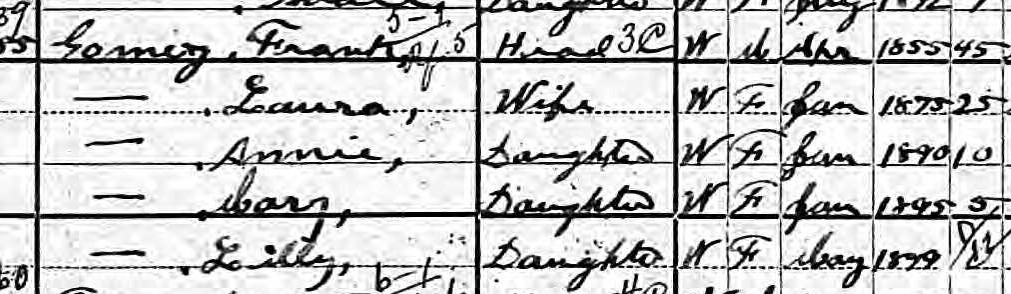 39 Daughter W F
55 Gomez, Frank 5-1 5 Head 3C W M Apr 1855 45
— Laura, Wife W F Jan 1875 25
— Annie, Daughter W F Jan 1890 10
— Mary, Daughter W F Jan 1895 5
— Lilly, Daughter W F May 1899 /12
60 6-1